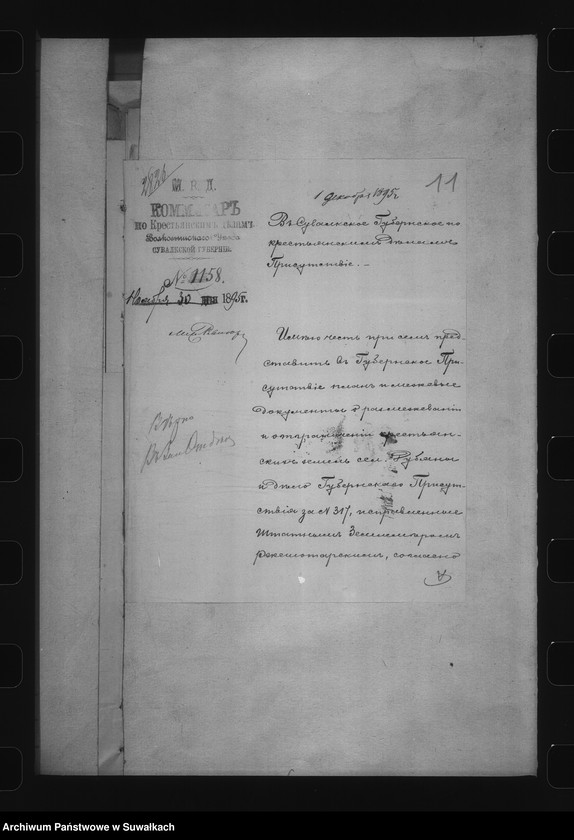 2826
11
1 декабря 1895 г
М. В. Д.
КОММИСАРЪ
по Крестьянскимъ дѣламъ
СУВАЛКСКОЙ ГУБЕРНІИ.
№ 1158.
Ноября 30 дня 1895 г.
Въ Сувалкское Губернское по
крестьянскимъ дѣламъ
Присутствіе. —
Имѣю честь при семъ пред-
ставить въ Губернское При-
сутствіе планъ и межевые
документы о размежеваніи
и отграниченіи крестьян-
скихъ земель сел.
и дѣло Губернскаго Присут-
ствія за № 317, исправленные
Штатнымъ Землемѣромъ
согласно
Archiwum Państwowe w Suwałkach